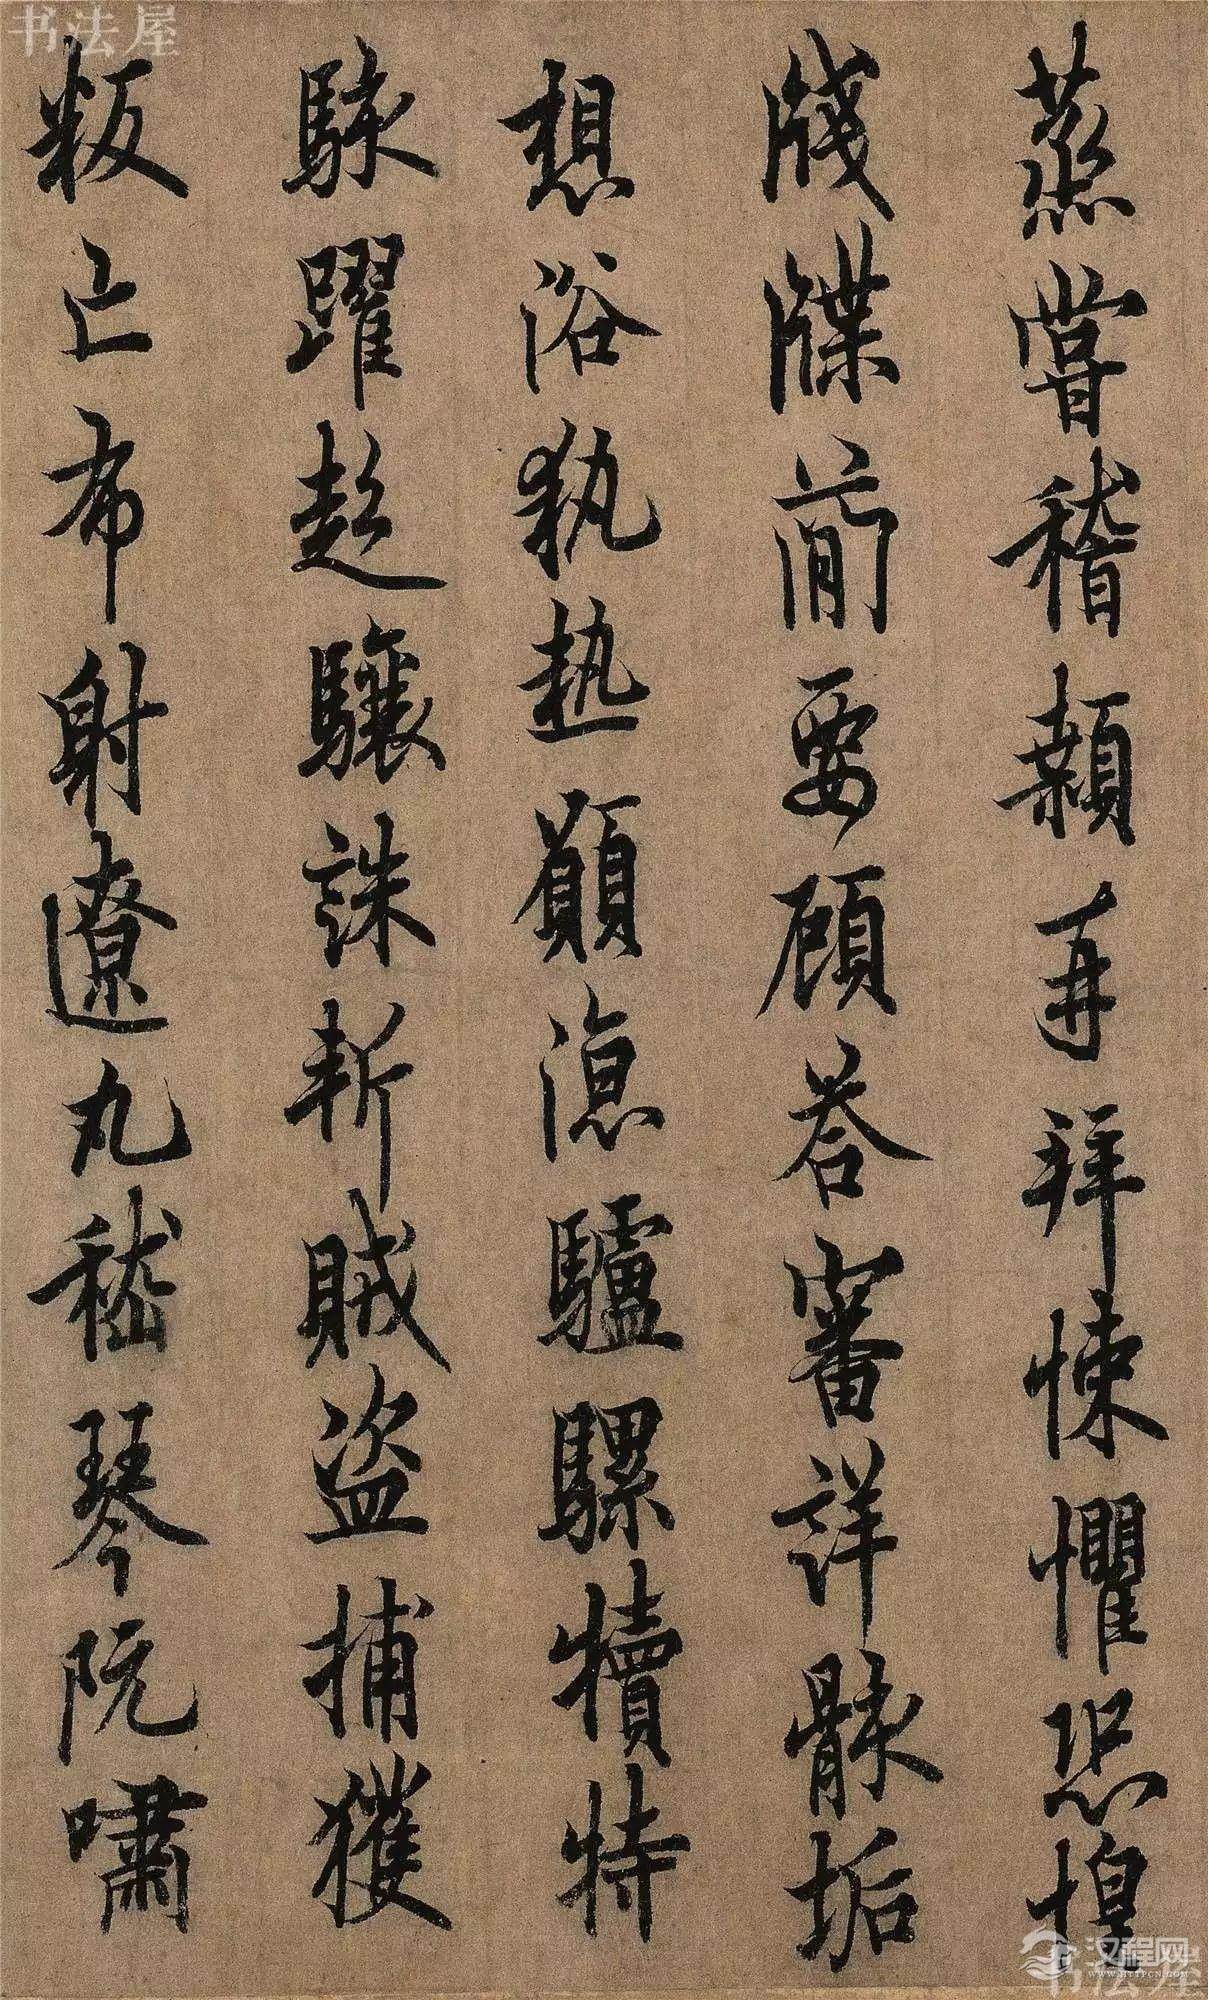 蒸嘗稽顙再拜悚懼恐惶
牋牒簡要顧荅審詳骸垢
想浴執熱願涼驢騾犢特
駭躍超驤誅斬賊盜捕獲
叛亡布射遼丸嵇琴阮嘯
书法屋
汉程网
WWW.HTTPCN.COM
书法屋